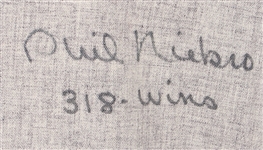 Phil Niekro
318-wins